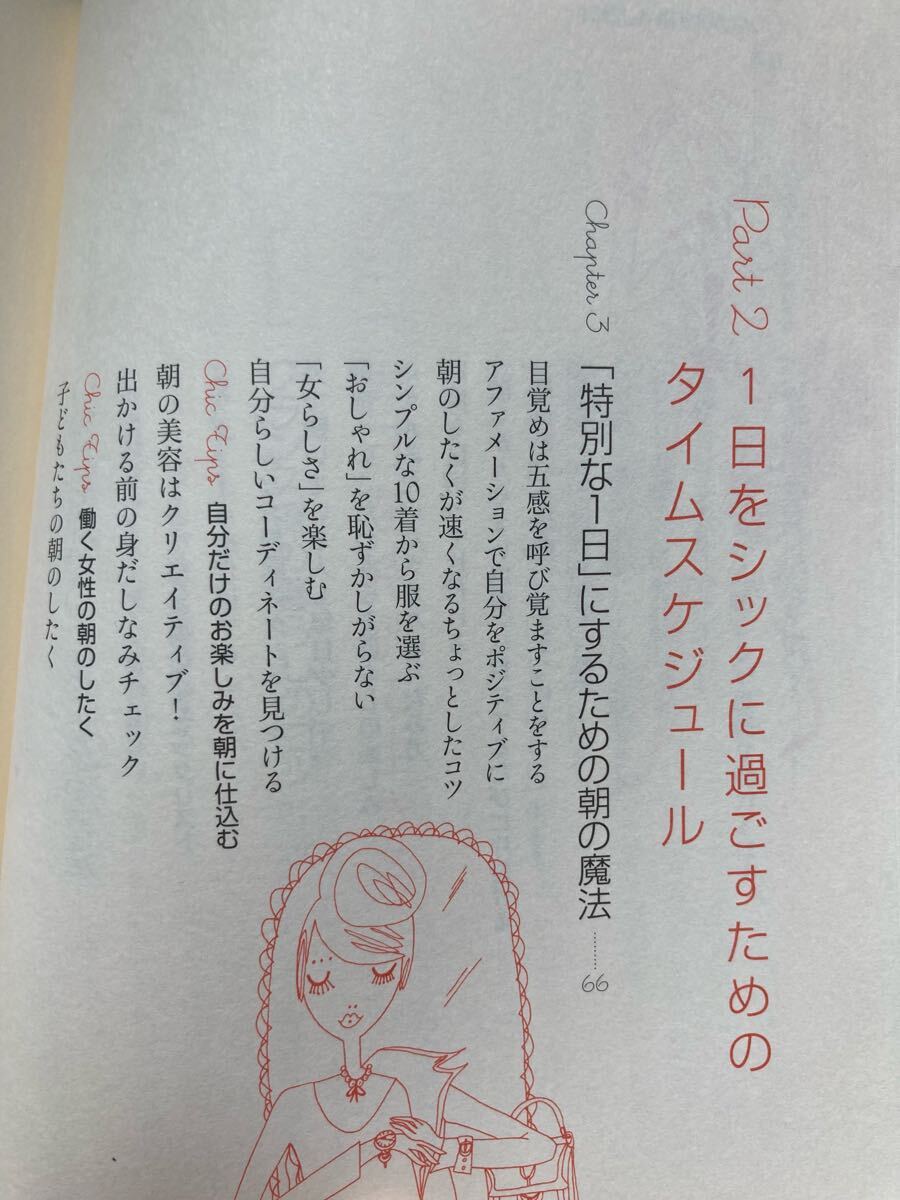 Part 2 1日をシックに過ごすための
タイムスケジュール
Chapter 3 「特別な1日」にするための朝の魔法 ………66
目覚めは五感を呼び覚ますことをする
アファメーションで自分をポジティブに
朝のしたくが速くなるちょっとしたコツ
シンプルな10着から服を選ぶ
「おしゃれ」を恥ずかしがらない
「女らしさ」を楽しむ
自分らしいコーディネートを見つける
Chic Tips 自分だけのお楽しみを朝に仕込む
朝の美容はクリエイティブ！
出かける前の身だしなみチェック
Chic Tips 働く女性の朝のしたく
子どもたちの朝のしたく